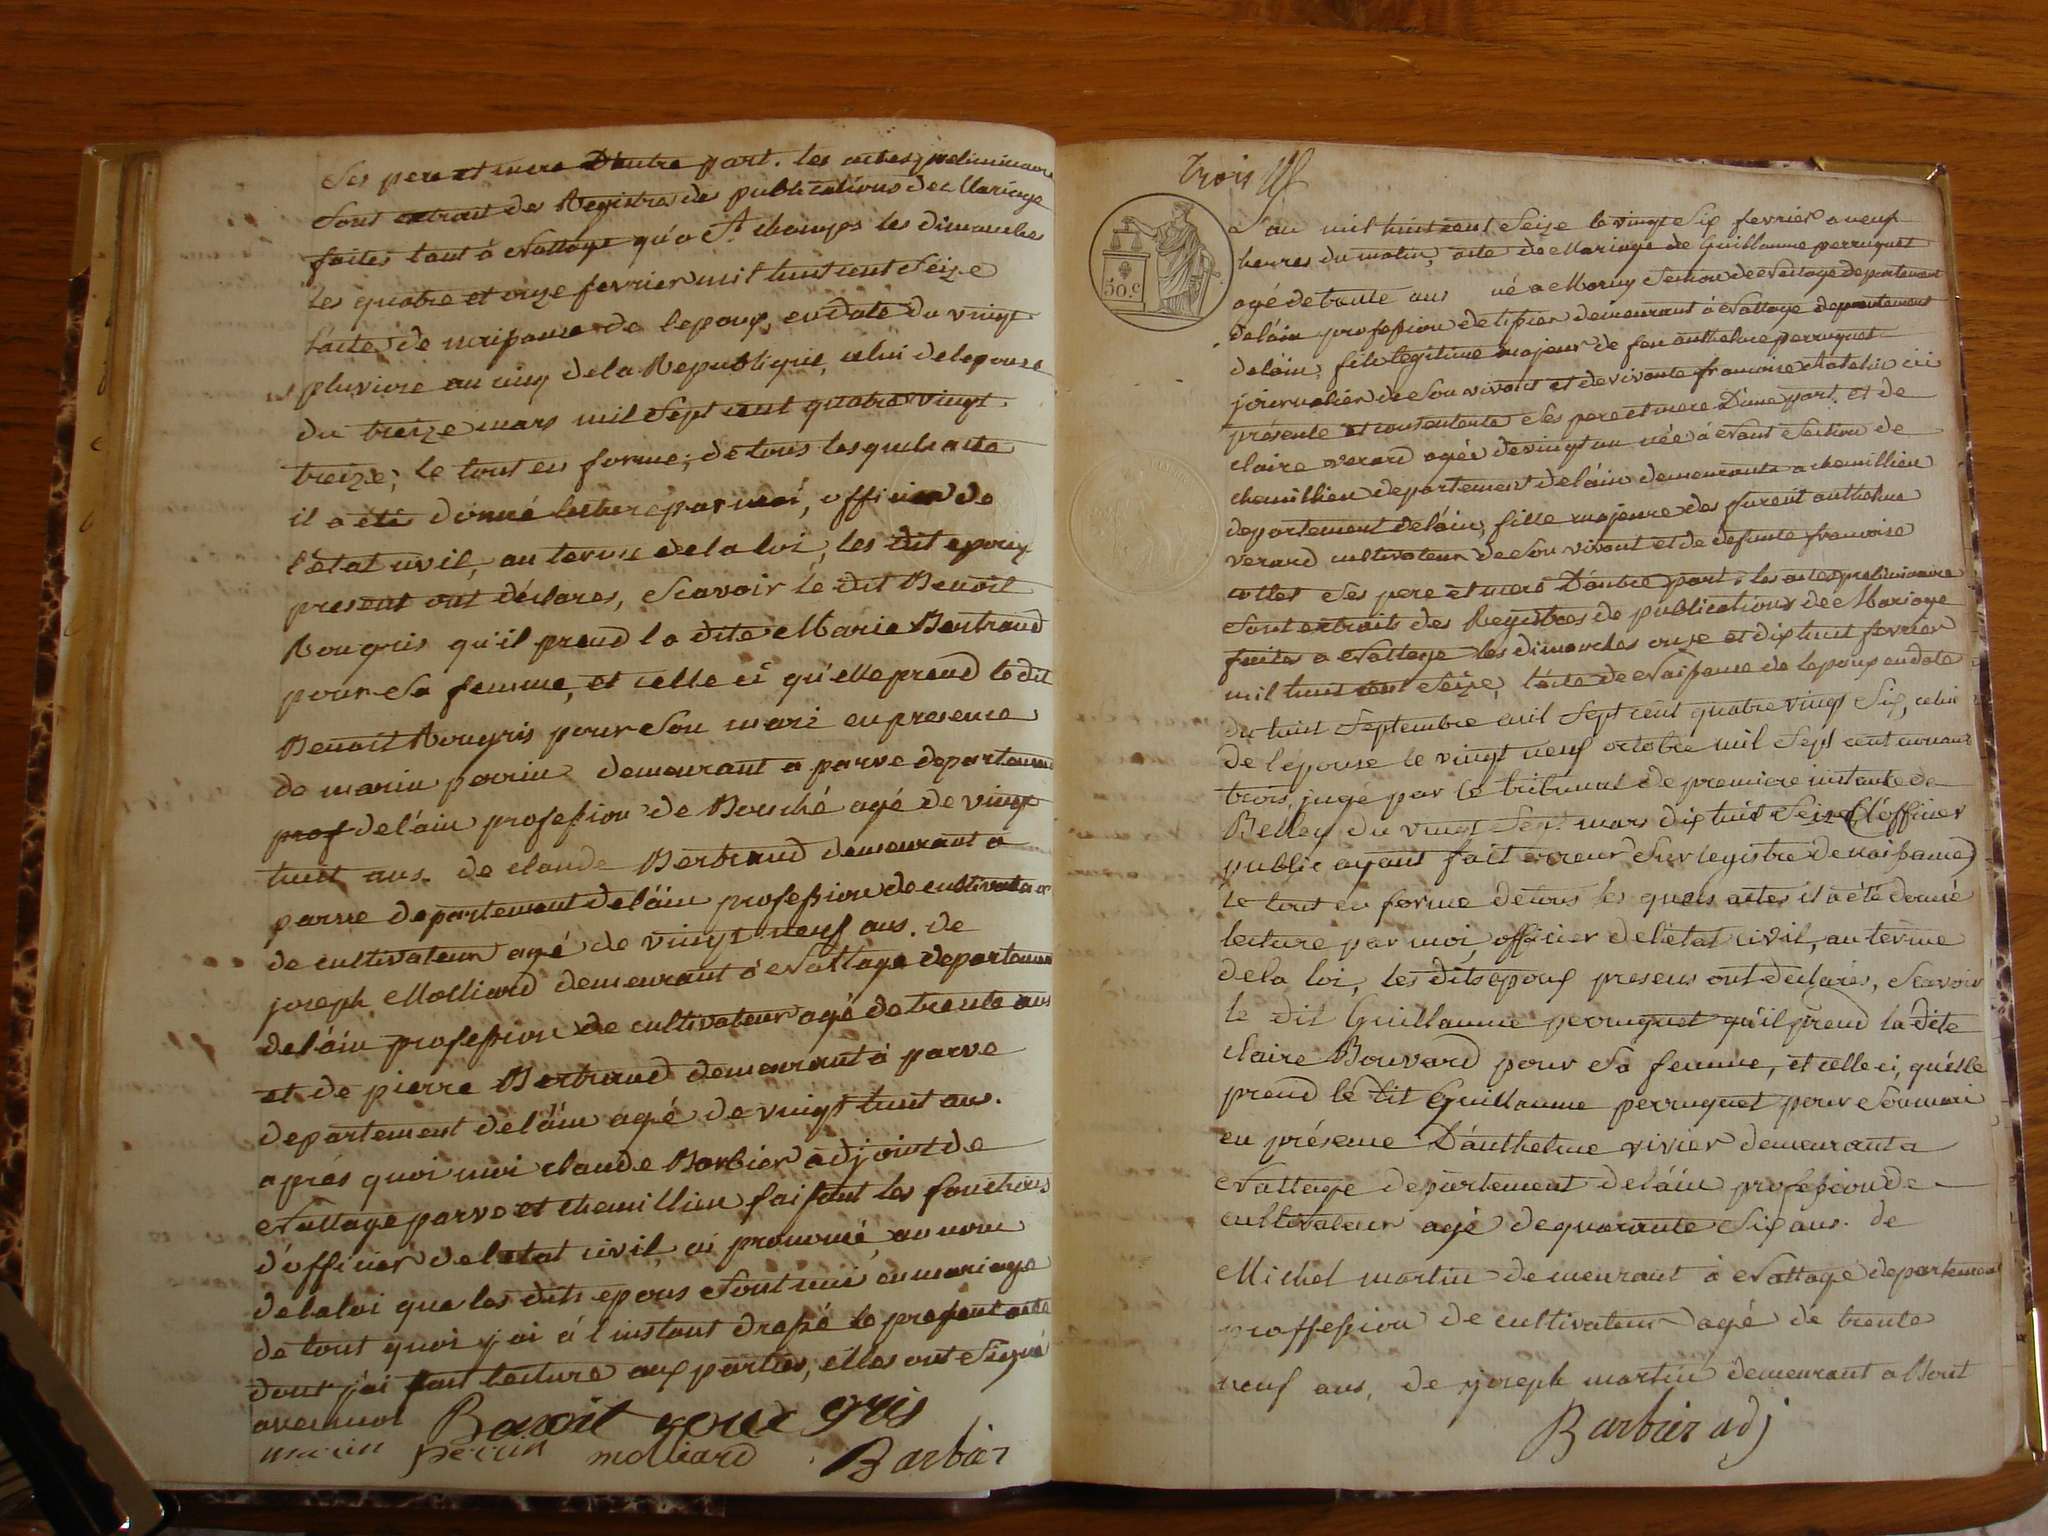 Ses pere et mere D'autre part. les actes preliminaire
Sont extrait des Registre de publications de Mariage
faites tant à Nattage qu'a St champs les dimanches
les quatre et onze fevrier mil huit cent Seize
l'acte de naissance de l'epoux, en date du vingt
pluviose an cinq de la Republique, celui de lepouse
du treize mars mil Sept cent quatre vingt
treize; le tout en forme; de tous lesquels acte
il a été donné lecture par moi, officier de
l'état civil, au terme de la loi, les dit epoux
present ont déclares, Scavoir le dit Benoit
Rougris qu'il prend la dite Marie Bertrand
pour Sa femme, et celle ci qu'elle prend le dit
Benoit Rougris pour Son mari en presence
de marin perrin demeurant a parve departement
prof de l'ain profession de agé de vingt
huit ans. de claude Bertrand demeurant a
parve departement de l'ain profession de cultivateur
de cultivateur agé de vingt neuf ans. de
joseph Molliard demeurant à Nattage departement
de l'ain profession de cultivateur agé de trente ans
et de pierre Bertrand demeurant à parve
departement de l'ain agé de vingt huit ans.
aprés quoi moi claude Barbier adjoint de
Nattage parve et chemillieu faisant les fonctions
d'officier de l'etat civil, ai prononcé au nom
de la loi que les dits epoux Sont uni en mariage
de tout quoi j'ai à l'instant dressé le present acte
dont j'ai fait lecture aux parties, elles ont Signé
avec moi Benoit roux gris
marin perrin molliard Barbier
trois
L'an mil huit cent Seize le vingt Six fevrier a neuf
heures du matin, acte de Mariage de Guillaume perruquet
agé de trente ans né a Section de Nattage departement
de l'ain profession de tissier demeurant à Nattage departement
de l'ain, fils legitime majeur de feu anthelme perruquet
journalier de Son vivant et de vivante francoise ici
présente et consentente Ses pere et mere D'une part. et de
claire verard agée de vingt un née à Nant Section de
chemillieu departement de l'ain demeurante a chemillieu
departement de l'ain, fille majeure des furent anthelme
verard cultivateur de Son vivant et de defunte francoise
collet Ses pere et mere D'autre part; les actes preliminaire
Sont extraits des Registres de publications de Mariage
faites a Nattage les dimanches onze et dix huit fevrier
mil huit cent Seize, l'acte de Naissance de lepoux en date
du huit Septembre mil Sept cent quatre vingt Six, celui
de l'épouse le vingt neuf octobre mil Sept cent nonante
trois, jugé par le tribunal de premiere instante de
Belley du vingt Sept mars dix huit Seize (l'officier
public ayant fait erreur Sur registre de naissance)
le tout en forme de tous les quels actes il a été donné
lecture par moi, officier de l'état civil, au terme
de la loi, les dits epoux presens ont declarés, Scavoir
le dit Guillaume perruquet qu'il prend la dite
claire Bouvard pour Sa femme, et celle ci, qu'elle
prend le dit Guillaume perruquet pour Son mari
en présence D'anthelme vivier demeurant a
Nattage departement de l'ain profession de
cultivateur agé de quarante Six ans. de
Michel martin demeurant à Nattage departement
proffession de cultivateur agé de trente
neuf ans, de joseph martin demeurant a
Barbier adj
50 c